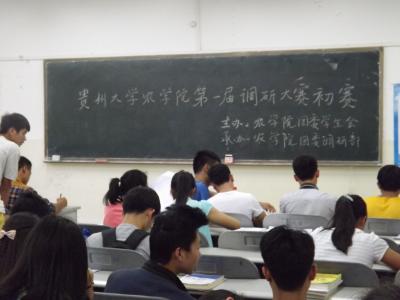 贵州大学农学院第一届调研大赛初赛
主办：农学院团委学生会
承办：农学院团委调研部